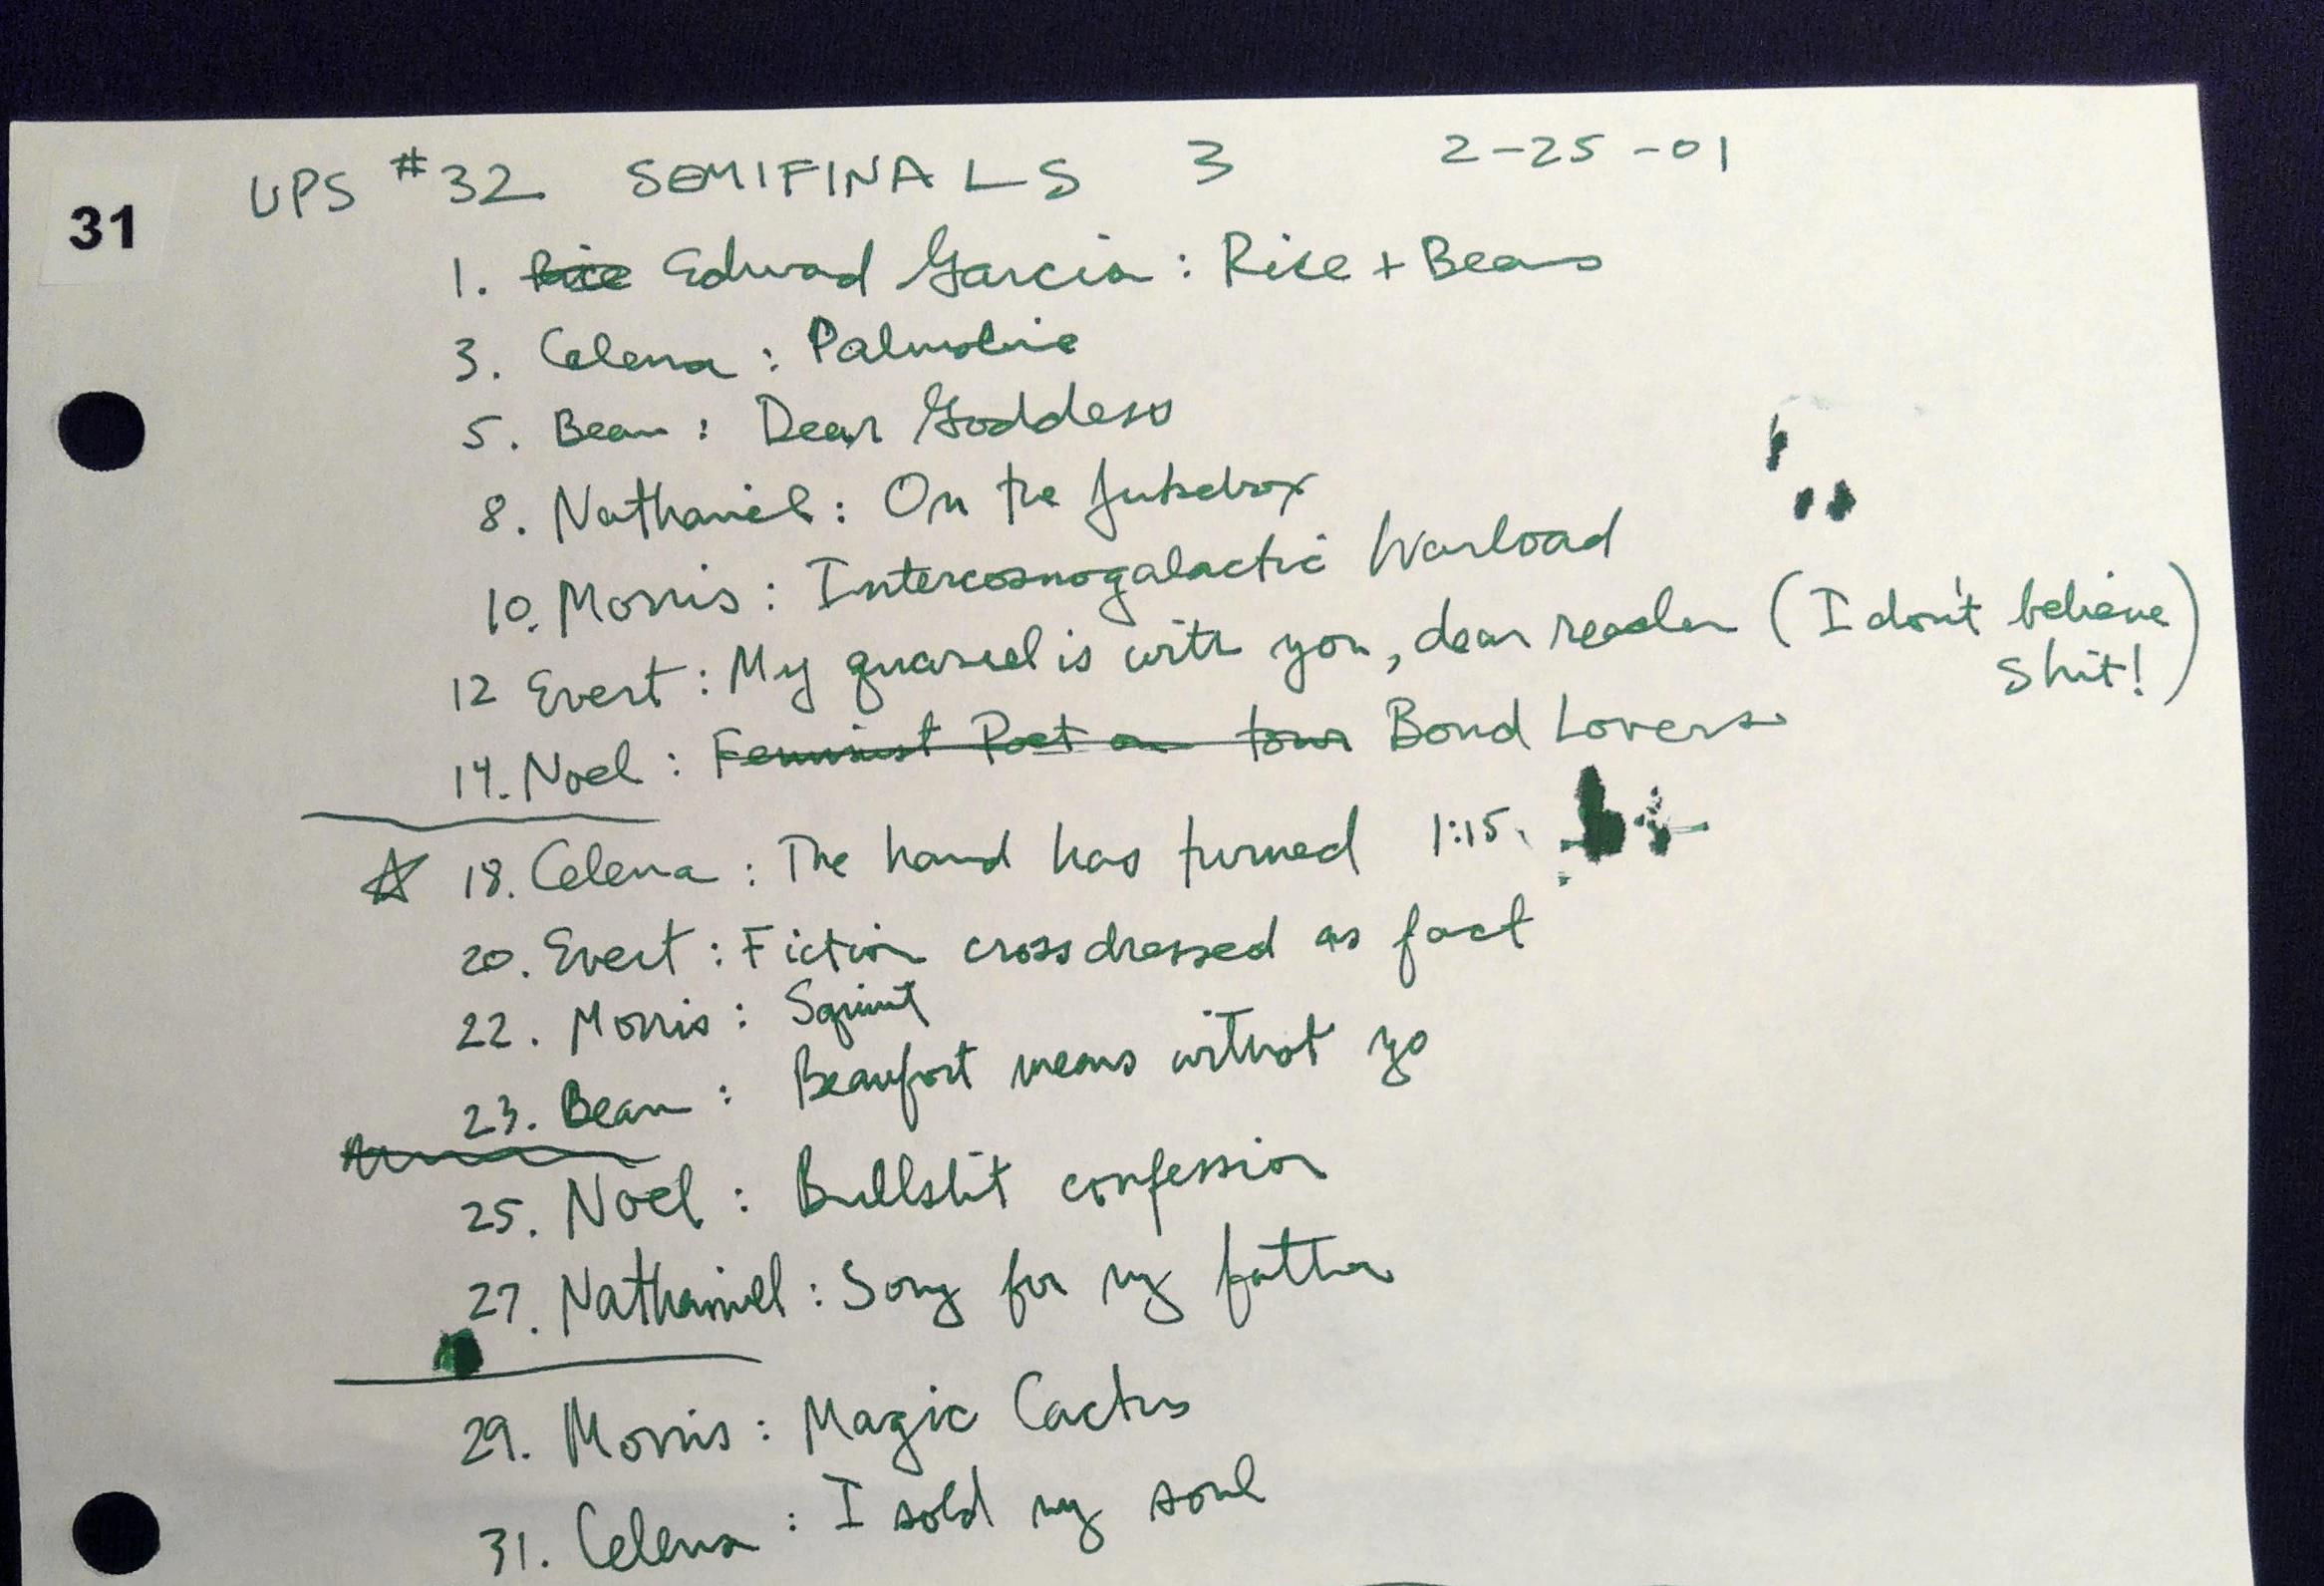 31
UPS #32 SEMIFINALS 3 2-25-01
1. Rice Edwad Garcia : Rice + Beans
3. Celena : Palmolive
5. Bean : Dear Goddess
8. Nathaniel : On the Jukebox
10. Morris : Intercosmogalactic Warload
12 Evert : My quarrel is with you, dear reader (I don't believe
shit!)
14. Noel : Feminist Poet on tour Bond Lovers
☆ 18. Celena : The hand has turned 1:15
20. Evert : Fiction crossdressed as fact
22. Morris : Squint
23. Bean : Beaufort means without yo
25. Noel : Bullshit confession
27. Nathaniel : Song for my father
29. Morris : Magic Cactus
31. Celena : I sold my soul